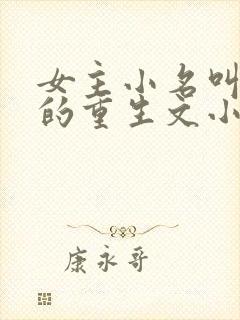 女主小名叫
的重生文小
康永哥